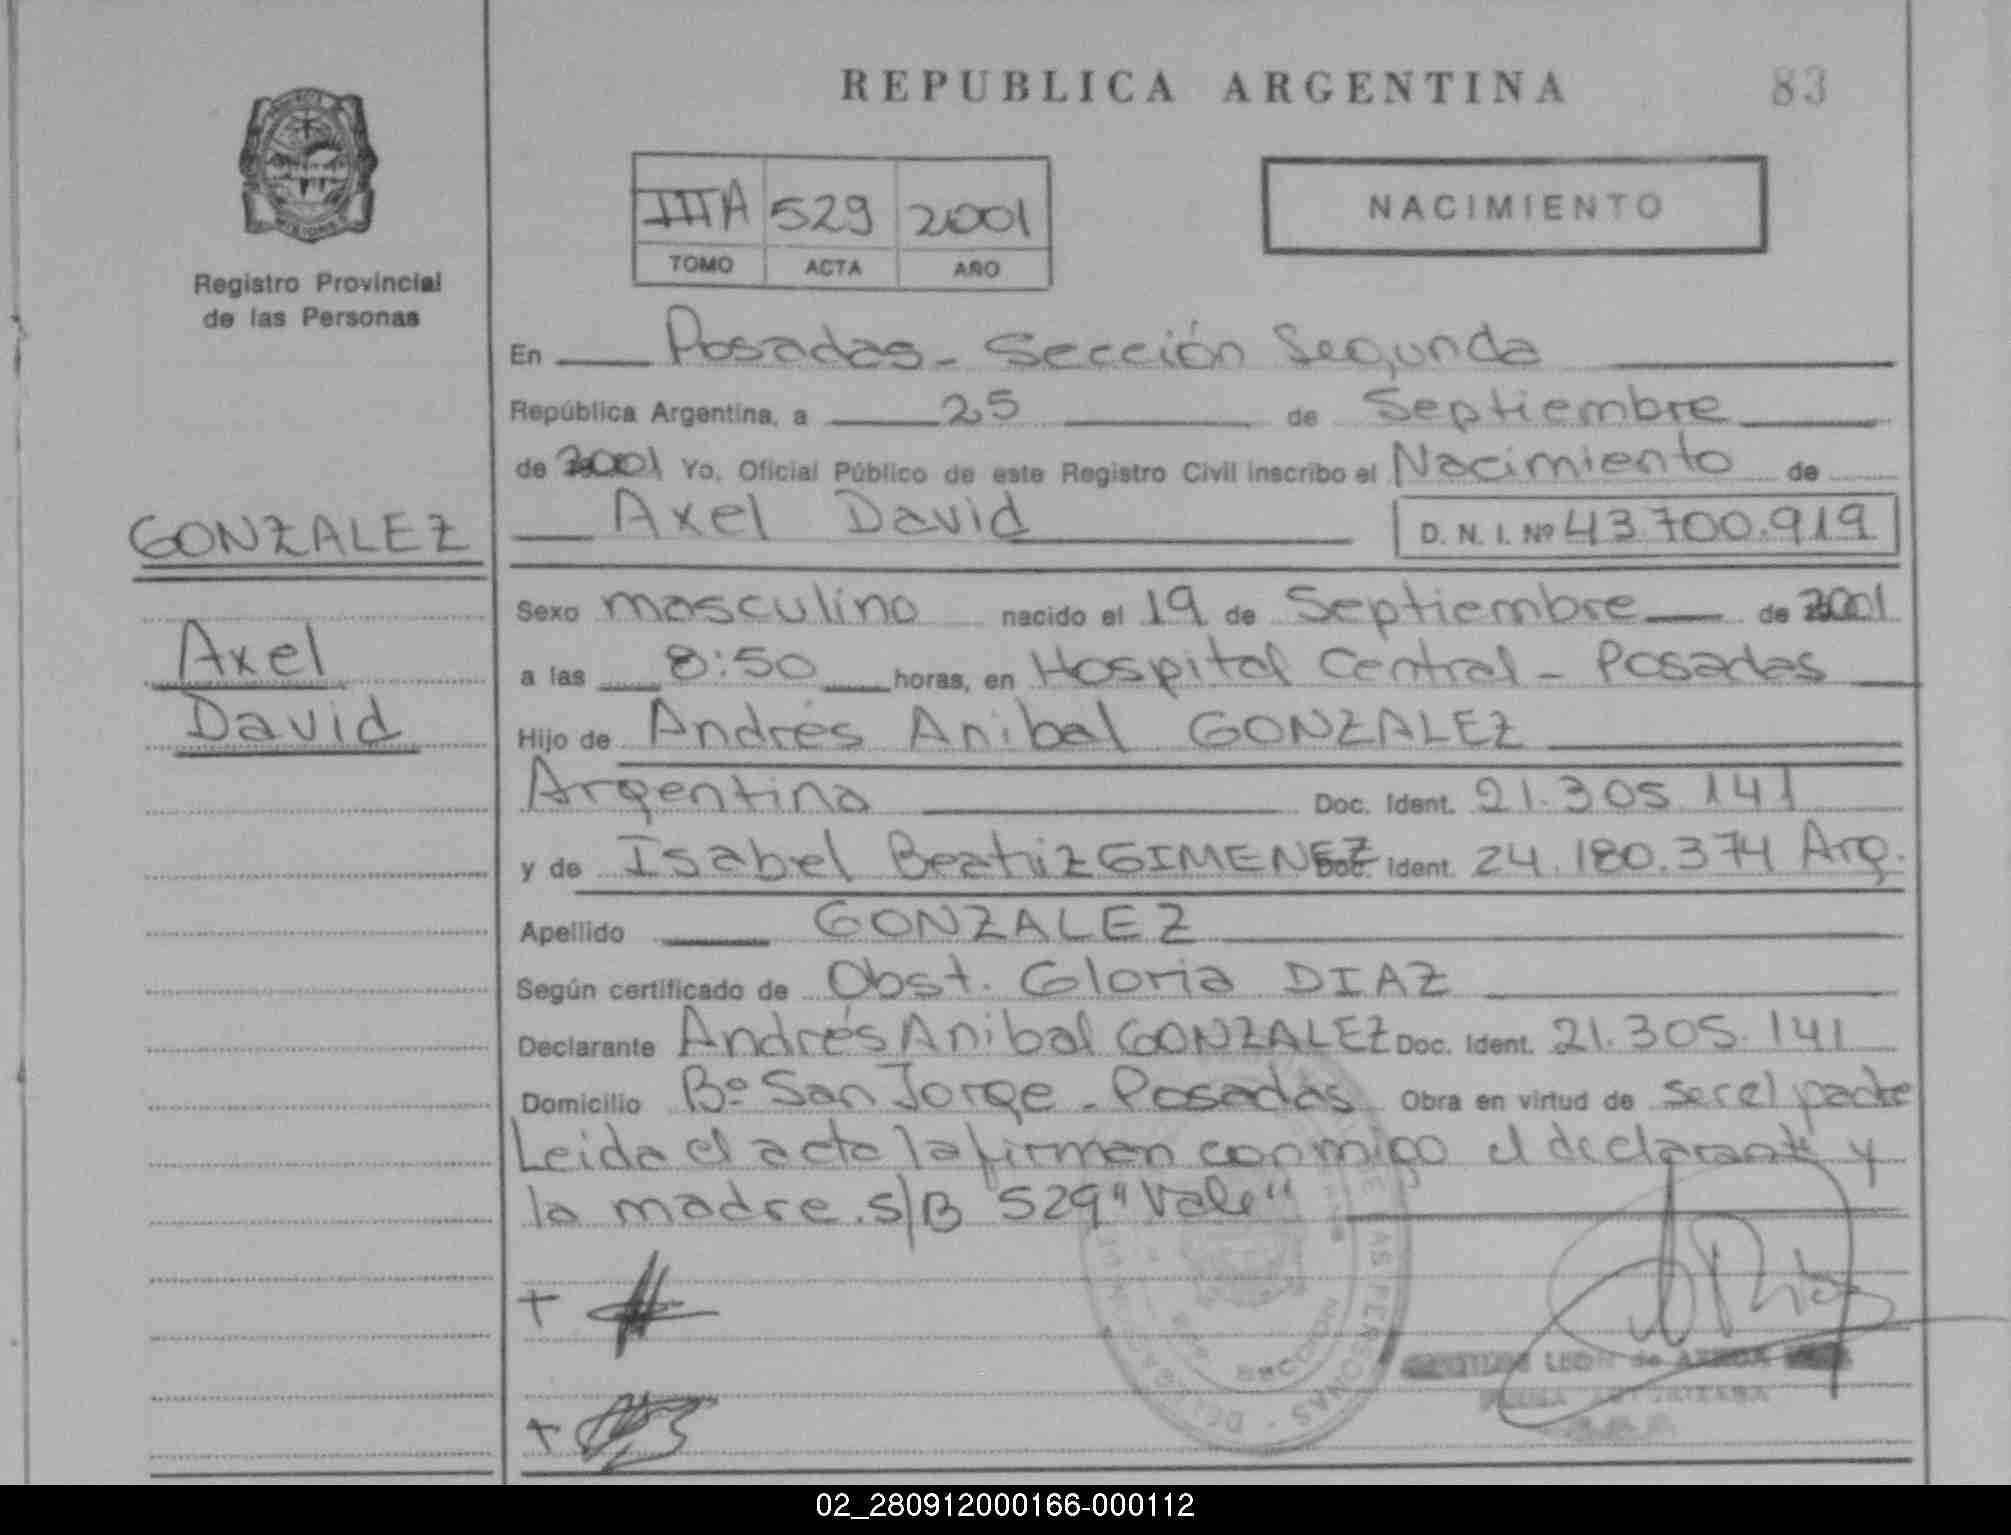 REPUBLICA ARGENTINA 83
IIIA 529 2001
TOMO ACTA AÑO
NACIMIENTO
Registro Provincial
de las Personas
En Posadas - Sección Segunda
República Argentina, a 25 de Septiembre
de 2001 Yo, Oficial Público de este Registro Civil inscribo el Nacimiento de
Axel David D. N. I. Nº 43.700.919
GONZALEZ
Axel
David
Sexo masculino nacido el 19 de Septiembre de 2001
a las 8:50 horas, en Hospital Central - Posadas
Hijo de Andrés Anibal GONZALEZ
Argentina Doc. Ident. 21.305.141
y de Isabel Beatriz GIMENEZ Doc. Ident. 24.180.374 Arg.
Apellido GONZALEZ
Según certificado de Obst. Gloria DIAZ
Declarante Andrés Anibal GONZALEZ Doc. Ident. 21.305.141
Domicilio Bº San Jorge - Posadas Obra en virtud de ser el padre
Leida el acta la firman conmigo el declarante y
la madre. S/B 529 "Vale"
02_280912000166-000112